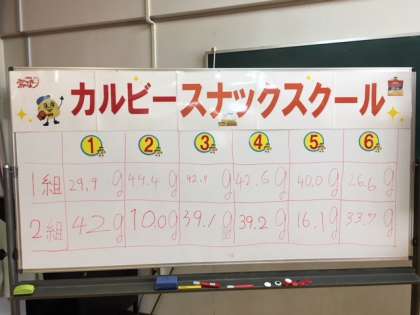 カルビースナックスクール
1 2 3 4 5 6
1組 29.9g 44.4g 42.9g 42.6g 40.0g 26.6g
2組 42g 10.0g 39.1g 39.2g 16.1g 33.7g